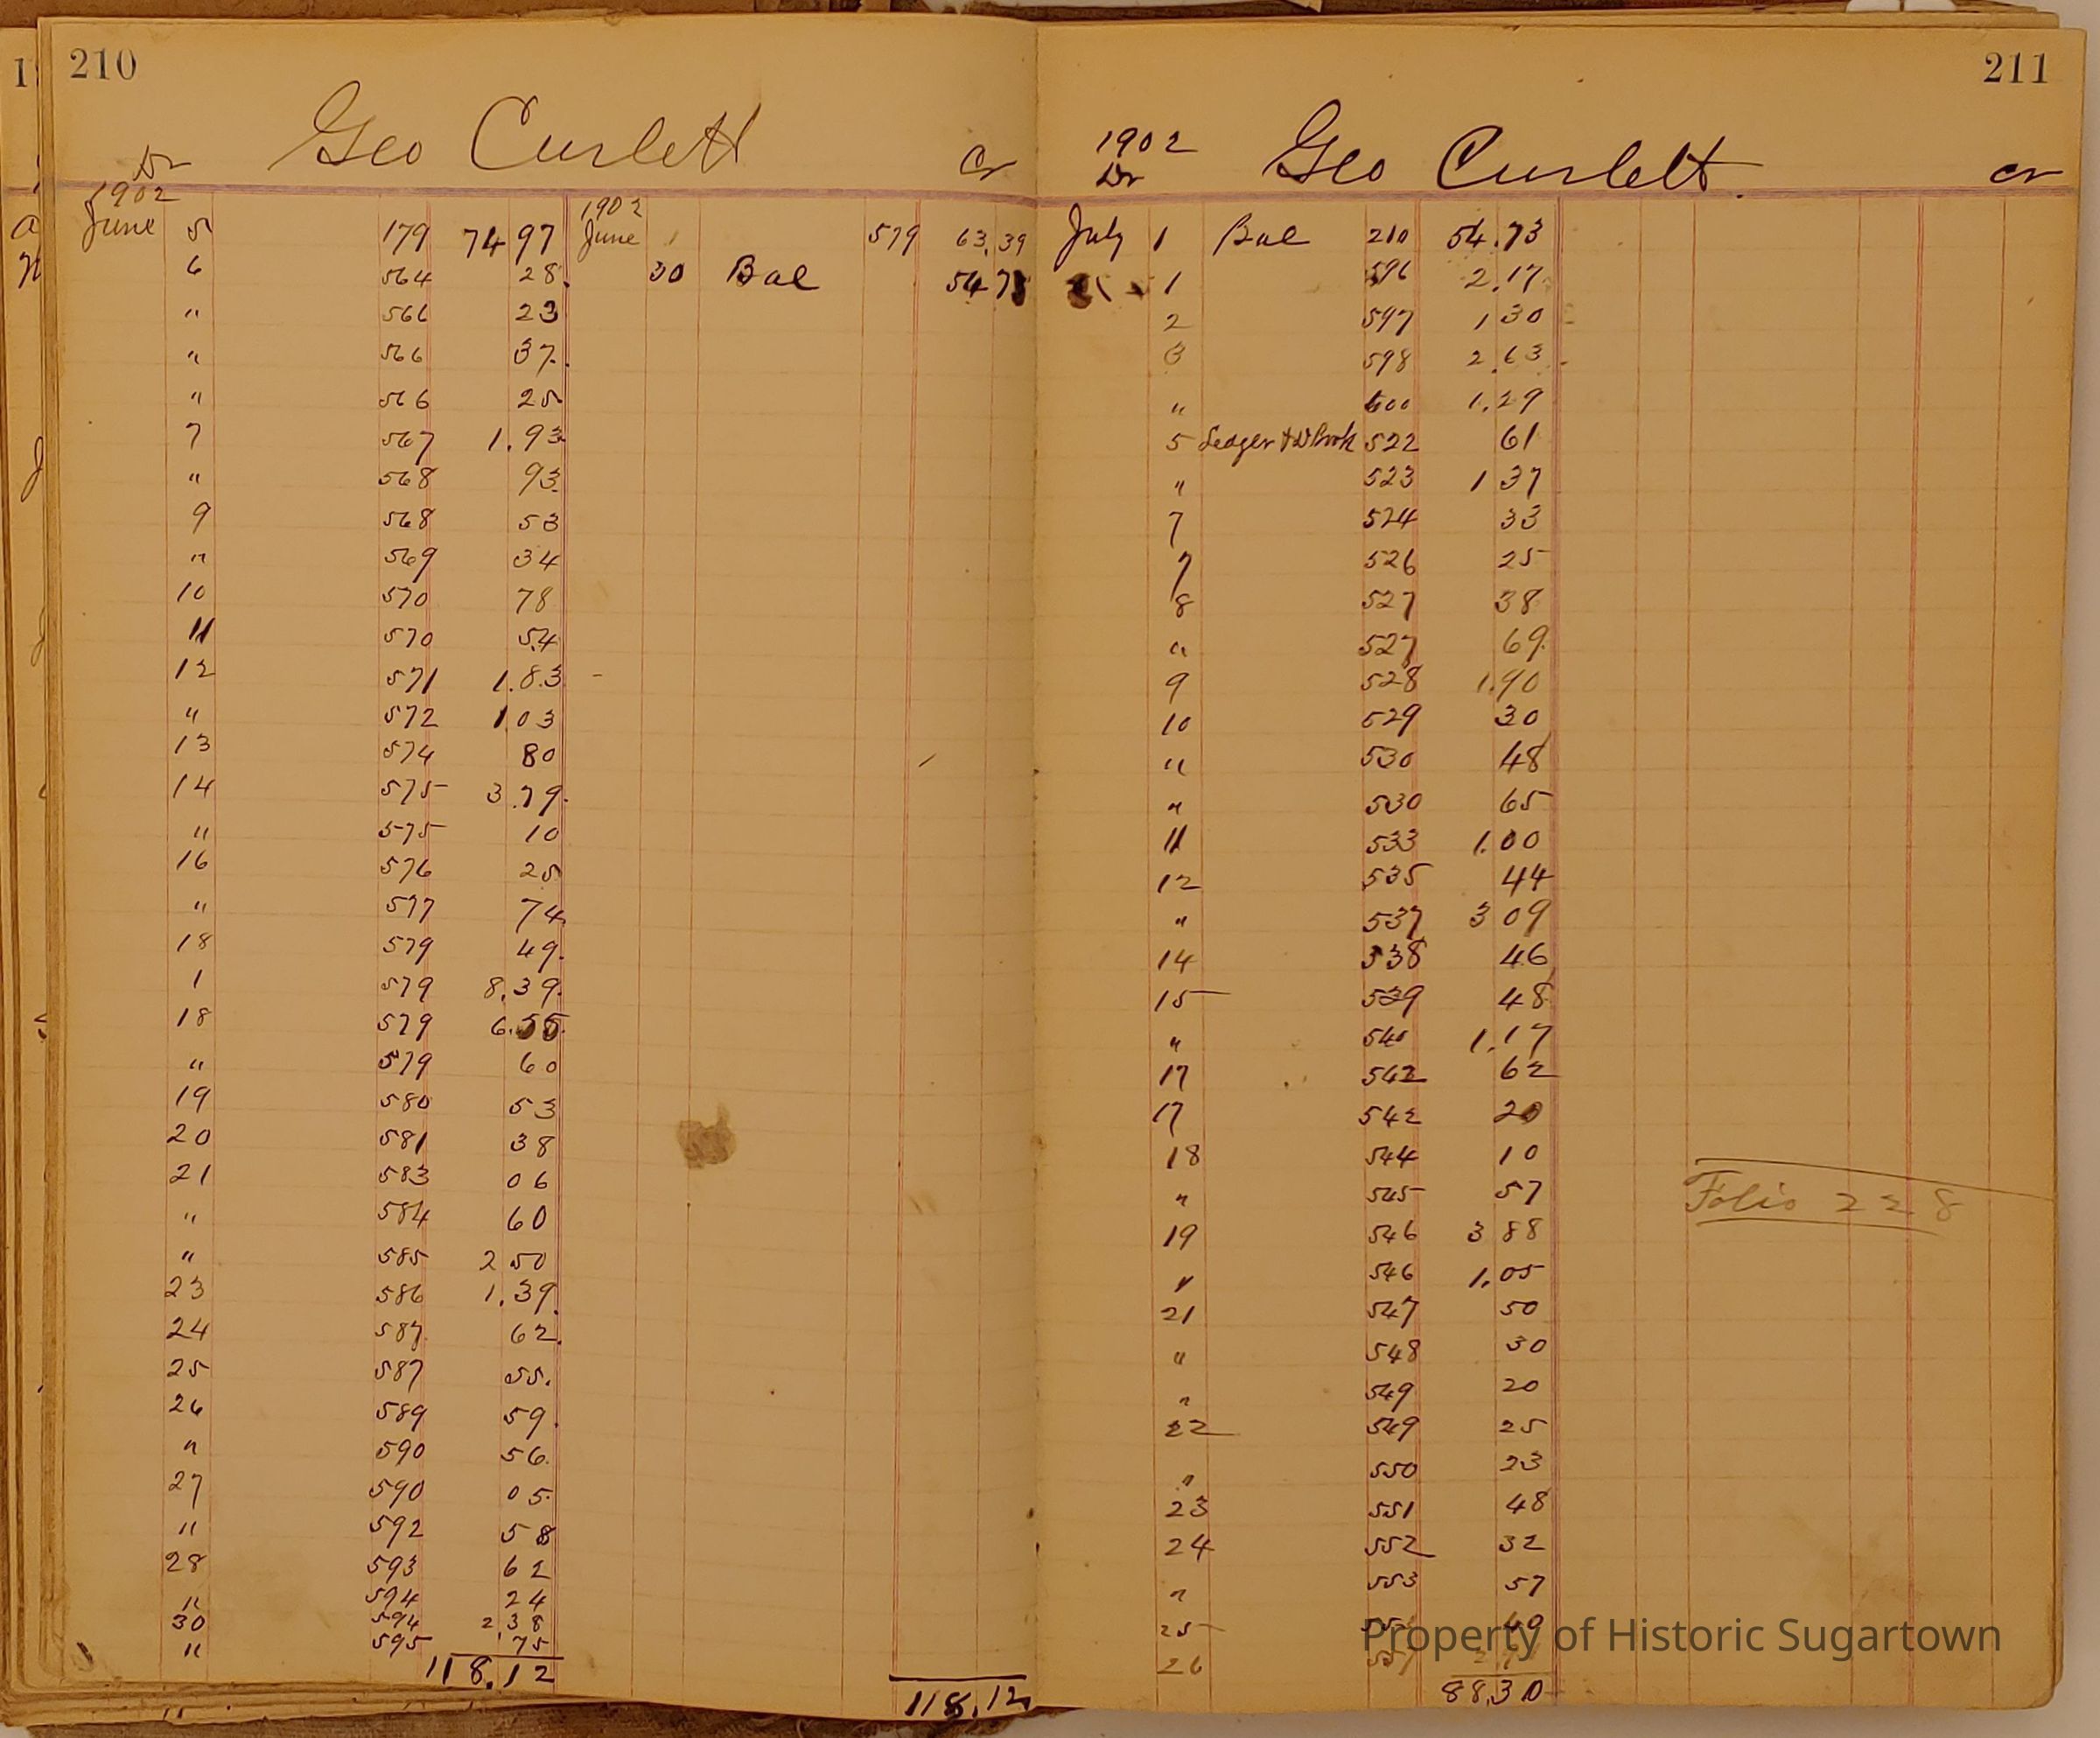 210
Geo Curlett
Dr Cr
1902 1902
June 5 179 74 97 June 1 579 63.39
6 564 28. 30 Bal 54 73
" 566 23
" 566 37.
" 566 25
7 567 1.93
" 568 93
9 568 53
" 569 34
10 570 78
11 570 54
12 571 1.83
" 572 1 03
13 574 80
14 575 3.79
" 575 10
16 576 25
" 577 74
18 579 49.
1 579 8.39
18 579 6.55
" 579 60
19 580 53
20 581 38
21 583 06
" 584 60
" 585 2 50
23 586 1.39
24 587 62.
25 587 55.
26 589 59.
" 590 56.
27 590 05
" 592 58
28 593 62
" 594 24
30 594 2.38
" 595 75
118.12 118.12
211
1902
Dr Geo Curlett. Cr
July 1 Bal 210 54.73
1 596 2.17
2 597 1 30
3 598 2.63
" 600 1.29
5 Ledger Book 522 61
" 523 1 37
7 524 33
7 526 25
8 527 38
" 527 69
9 528 1.90
10 529 30
" 530 48
" 530 65
11 533 1.00
12 535 44
" 537 3 09
14 538 46
15 539 48
" 540 1.17
17 542 62
17 542 20
18 544 10
" 545 57
19 546 3 88
" 546 1.05
21 547 50
" 548 30
" 549 20
22 549 25
" 550 23
23 551 48
24 552 32
" 553 57
25 49
26
88.30
Folio 228
Property of Historic Sugartown